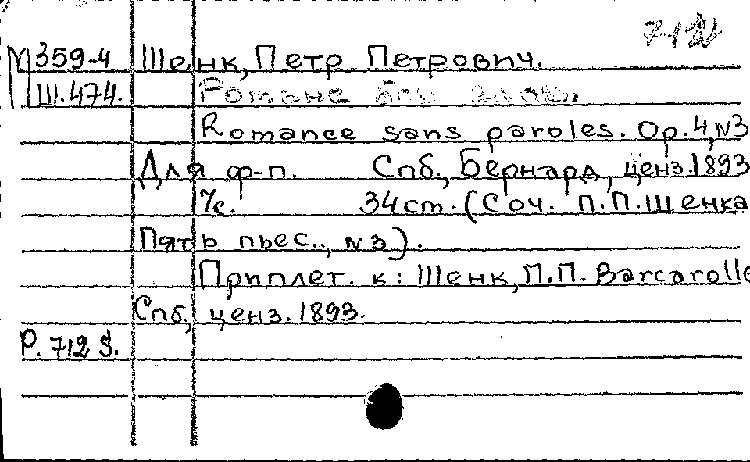 М 359-4 Шенк, Петр Петрович.
Ш.474. Романс без слов.
Romance sans paroles. Op.4, N3
Для ф-п. Спб., Бернард, ценз.1893
7с. 34 ст. (Соч. П.П.Шенка
Пять пьес., N3).
Приплет. к: Шенк, П.П. Barcarolle
Спб, ценз. 1893.
Р. 712 S.